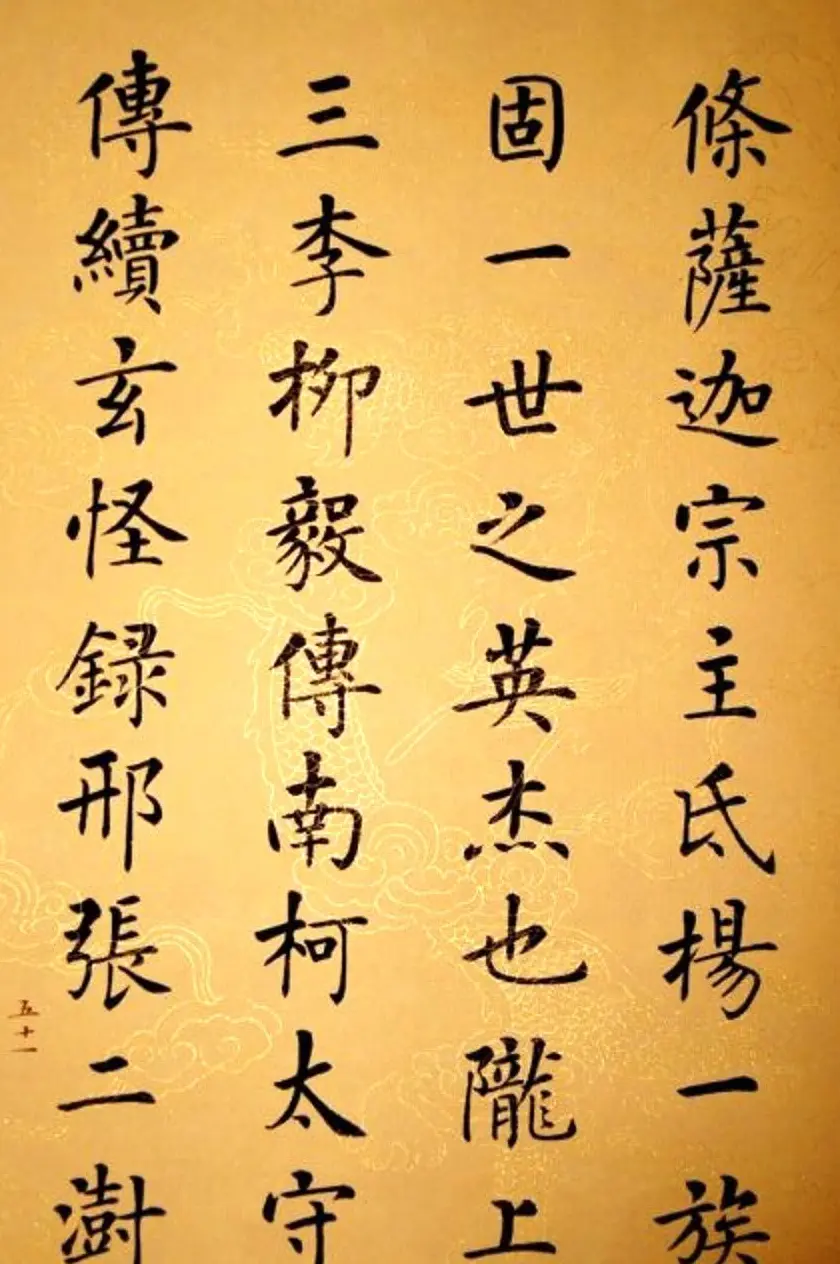 條薩迦宗主氐楊一族
固一世之英杰也隴上
三李柳毅傳南柯太守
傳續玄怪録邢張二澍
五十一